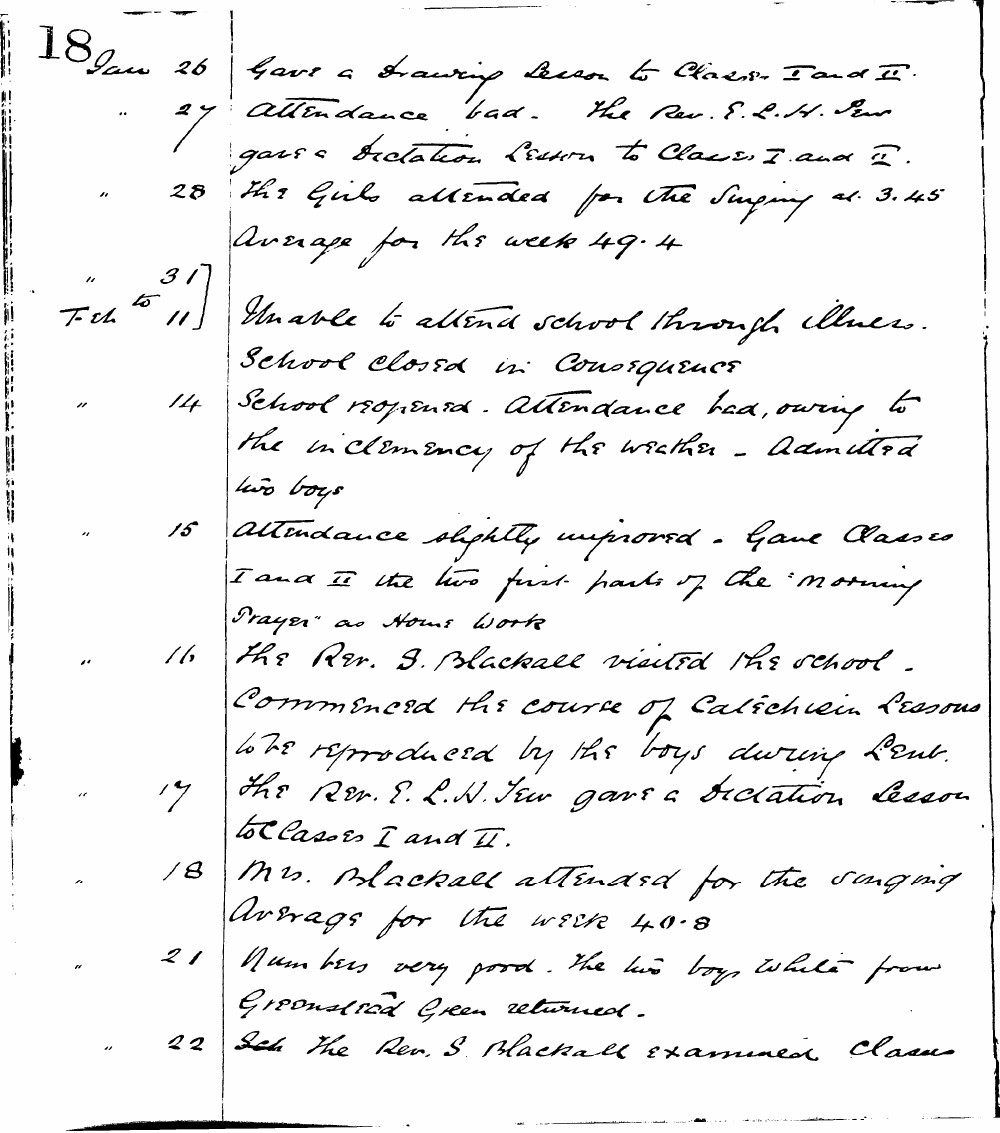 18
Jan 26 Gave a Drawing Lesson to Classes I and II.
" 27 Attendance bad. The Rev. E. L. H. Tew
gave a Dictation Lesson to Classes I and II.
" 28 The Girls attended for the Singing at 3.45
Average for the week 49.4
" 31
Feb to 11 Unable to attend school through illness.
School closed in Consequence
" 14 School reopened - Attendance bad, owing to
the inclemency of the weather - Admitted
two boys
" 15 Attendance slightly improved - Gave Classes
I and II the two first parts of the "Morning
Prayer" as Home Work
" 16 The Rev. S. Blackall visited the school -
Commenced the course of Catechism Lessons
to be reproduced by the boys during Lent.
" 17 The Rev. E. L. H. Tew gave a Dictation Lesson
to Classes I and II.
" 18 Mrs. Blackall attended for the singing
Average for the week 40.8
" 21 Numbers very good. The two boys White from
Greenstead Green returned -
" 22 Sch The Rev. S. Blackall examined Classes